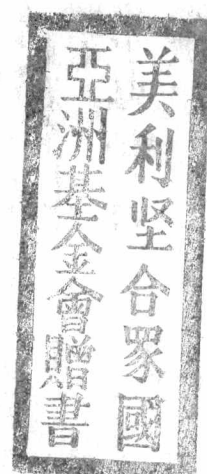 美利坚合眾國
亞洲基金會贈書